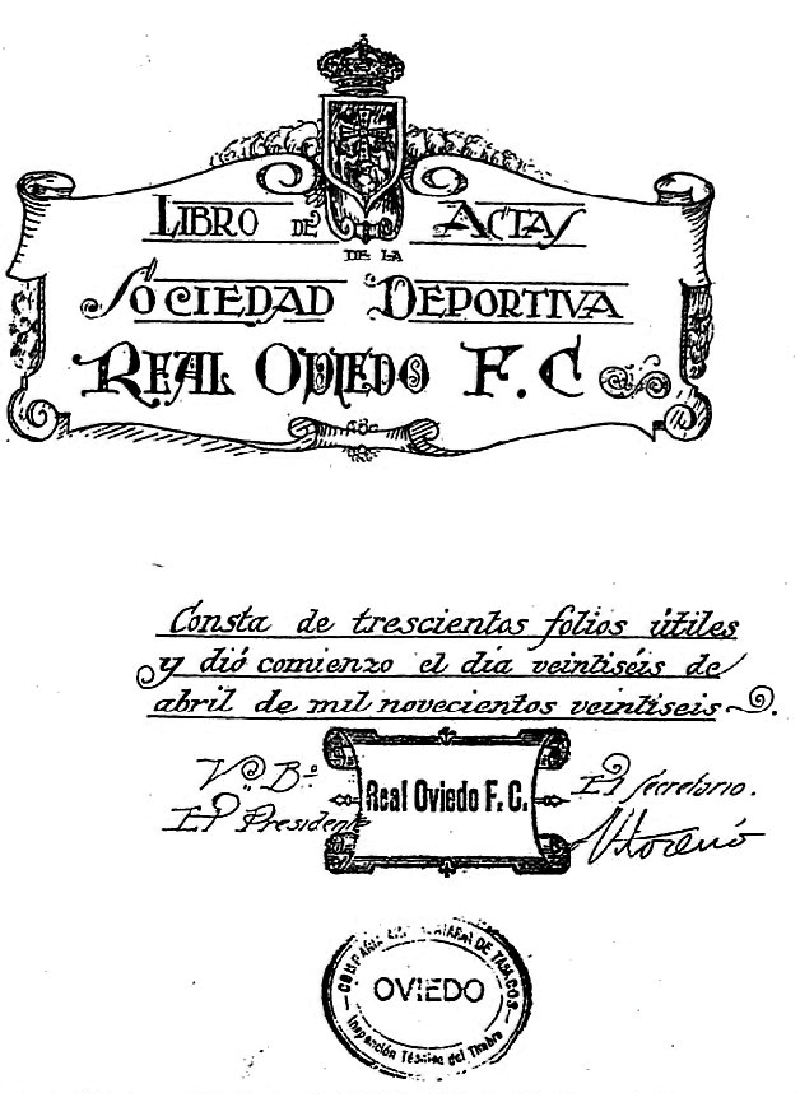 LIBRO DE ACTAS
DE LA
SOCIEDAD DEPORTIVA
REAL OVIEDO F.C
Consta de trescientos folios útiles
y dió comienzo el día veintiséis de
abril de mil novecientos veintiseis.
Vº Bº
El Presidente
Real Oviedo F. C.
El Secretario.
COMPAÑIA DE TABACOS
OVIEDO
Inspección Técnica del Timbre